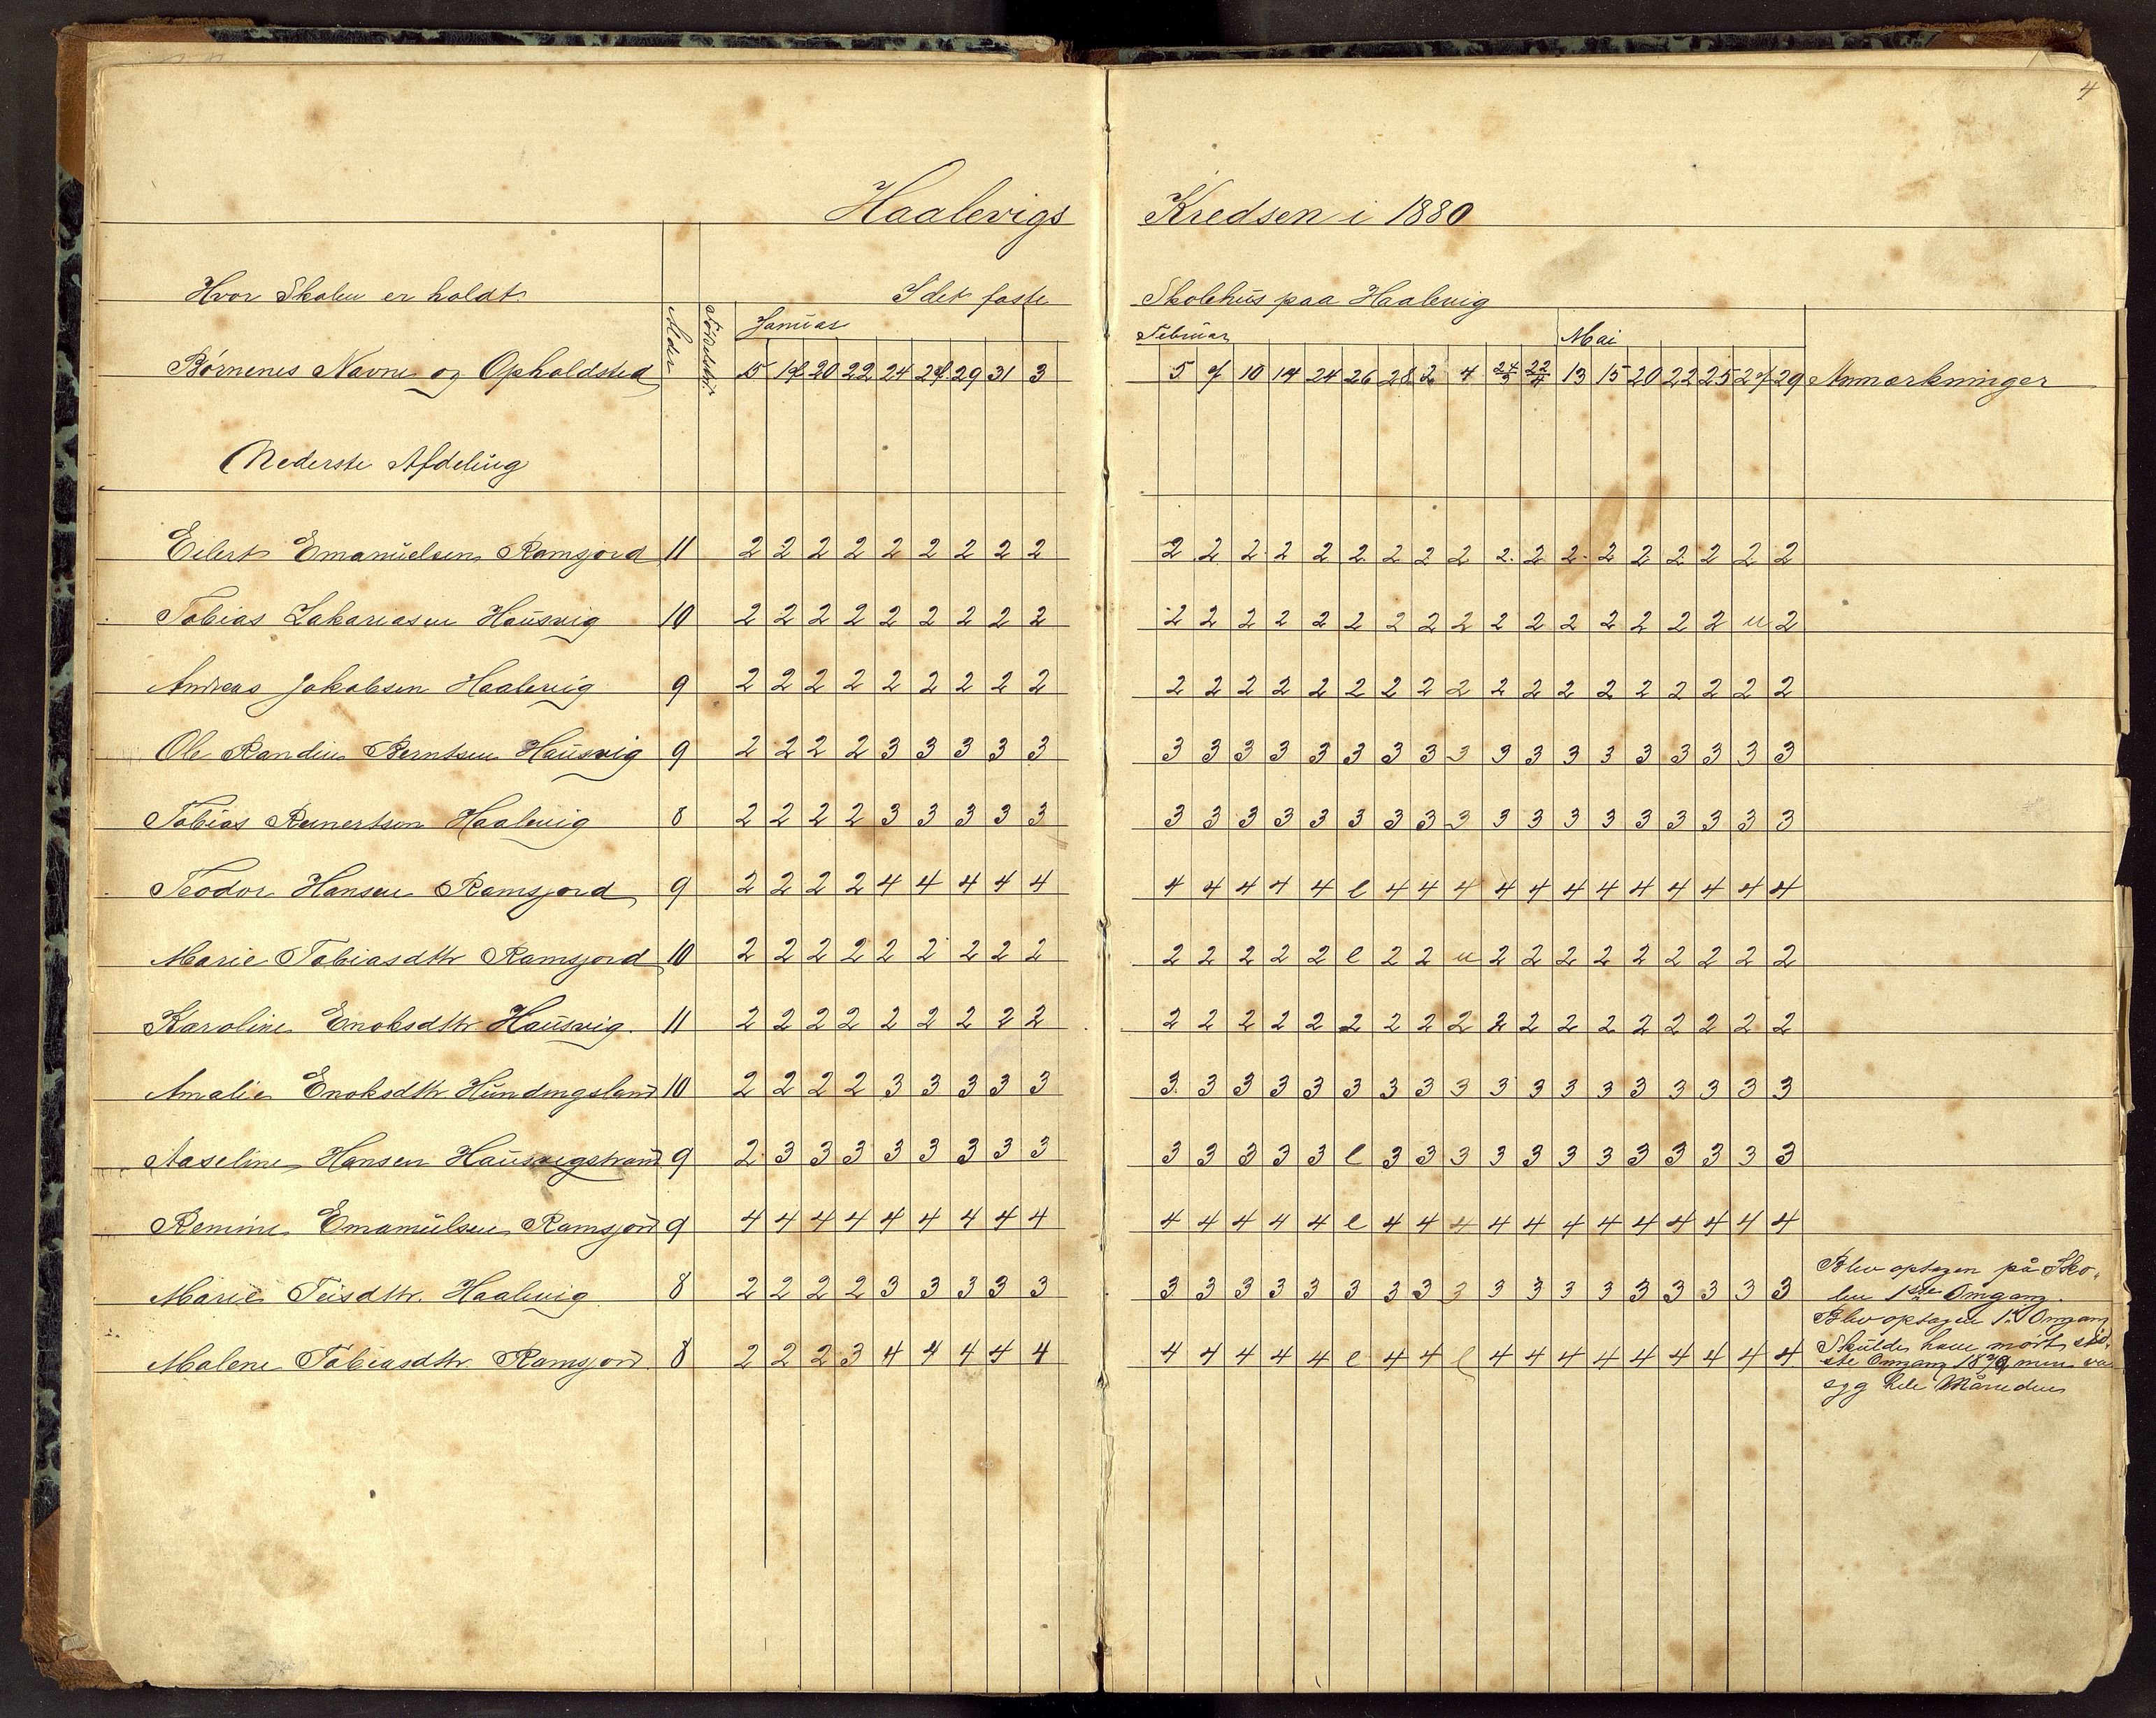 4
Haalevigs Kredsen i 1880
Hvor Skolen er holdt I det faste Skolehus paa Haalevig
Alder Januar Februar Mai
Børnenes Navne og Opholdsted 15 17 20 22 24 27 29 31 3 5 7 10 14 24 26 28 2 4 24/3 22/4 13 15 20 22 25 27 29 Anmærkninger
Nederste Afdeling
Eilert Emanuelsen Ramsjord 11 2 2 2 2 2 2 2 2 2 2 2 2 2 2 2 2 2 2 2 2 2 2 2 2 2 2 2
Tobias Zakariasen Hausvig 10 2 2 2 2 2 2 2 2 2 2 2 2 2 2 2 2 2 2 2 2 2 2 2 2 2 u 2
Andreas Jakobsen Haalevig 9 2 2 2 2 2 2 2 2 2 2 2 2 2 2 2 2 2 2 2 2 2 2 2 2 2 2 2
Ole Randin Berntsen Hausvig 9 2 2 2 2 3 3 3 3 3 3 3 3 3 3 3 3 3 3 3 3 3 3 3 3 3 3 3
Tobias Reinertsen Haalevig 8 2 2 2 2 3 3 3 3 3 3 3 3 3 3 3 3 3 3 3 3 3 3 3 3 3 3 3
Teodor Hansen Ramsjord 9 2 2 2 2 4 4 4 4 4 4 4 4 4 4 l 4 4 4 4 4 4 4 4 4 4 4 4
Marie Tobiasdtr Ramsjord 10 2 2 2 2 2 2 2 2 2 2 2 2 2 2 l 2 2 u 2 2 2 2 2 2 2 2 2
Karoline Enoksdtr Hausvig. 11 2 2 2 2 2 2 2 2 2 2 2 2 2 2 2 2 2 2 2 2 2 2 2 2 2 2 2
Amalie Enoksdtr Hundingsland 10 2 2 2 2 3 3 3 3 3 3 3 3 3 3 3 3 3 3 3 3 3 3 3 3 3 3 3
Aaseline Hansen Hausvigstrand 9 2 3 3 3 3 3 3 3 3 3 3 3 3 3 l 3 3 3 3 3 3 3 3 3 3 3 3
Remine Emanuelsen Ramsjord 9 4 4 4 4 4 4 4 4 4 4 4 4 4 4 l 4 4 4 4 4 4 4 4 4 4 4 4
Marie Teisdtr. Haalevig 8 2 2 2 2 3 3 3 3 3 3 3 3 3 3 3 3 3 3 3 3 3 3 3 3 3 3 3 Blev optagen på Sko-
len 1ste Omgang.
Malene Tobiasdtr Ramsjord 8 2 2 2 3 4 4 4 4 4 4 4 4 4 4 l 4 4 l 4 4 4 4 4 4 4 4 4 Blev optagen 1ste Omgang
Skulde have mødt sid-
ste Omgang 1879, men var
syg hele Måneden